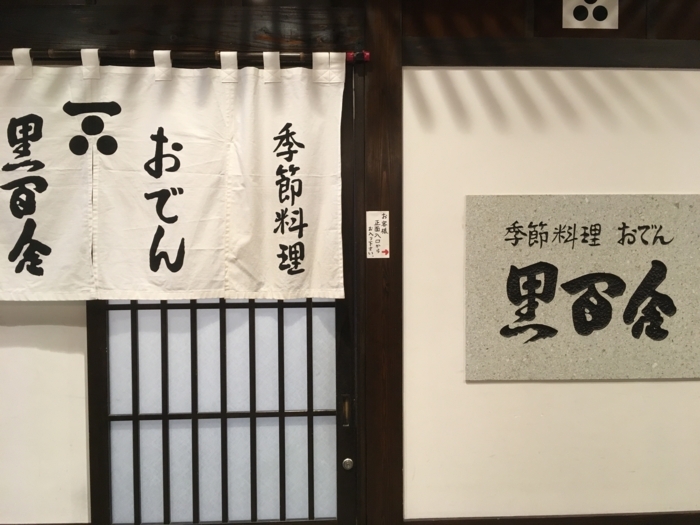 季節料理
おでん
黒百合
お客様
正面入口から
お入り下さい。
季節料理 おでん
黒百合